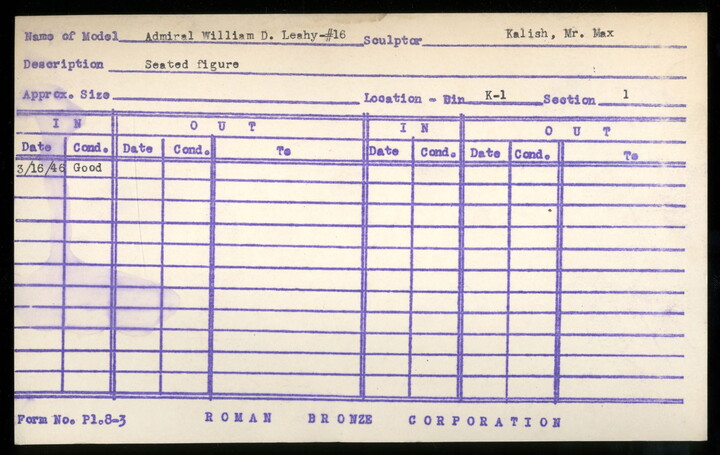 Name of Model Admiral William D. Leahy-#16 Sculptor Kalish, Mr. Max
Description Seated figure
Approx. Size Location - Bin K-1 Section 1
IN OUT IN OUT
Date Cond. Date Cond. To Date Cond. Date Cond. To
3/16/46 Good
Form No. Pl.8-3 ROMAN BRONZE CORPORATION